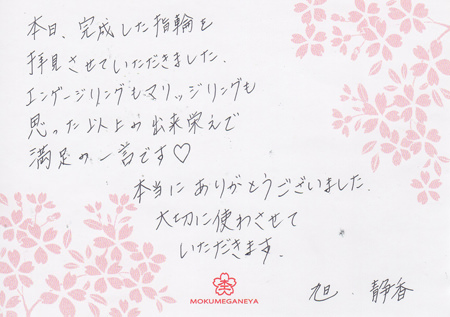 本日、完成した指輪を
拝見させていただきました.
エンゲージリングもマリッジリングも
思った以上の出来栄えで
満足の一言です♡
本当にありがとうございました.
大切に使わさせて
いただきます.
旭. 静香
MOKUMEGANEYA